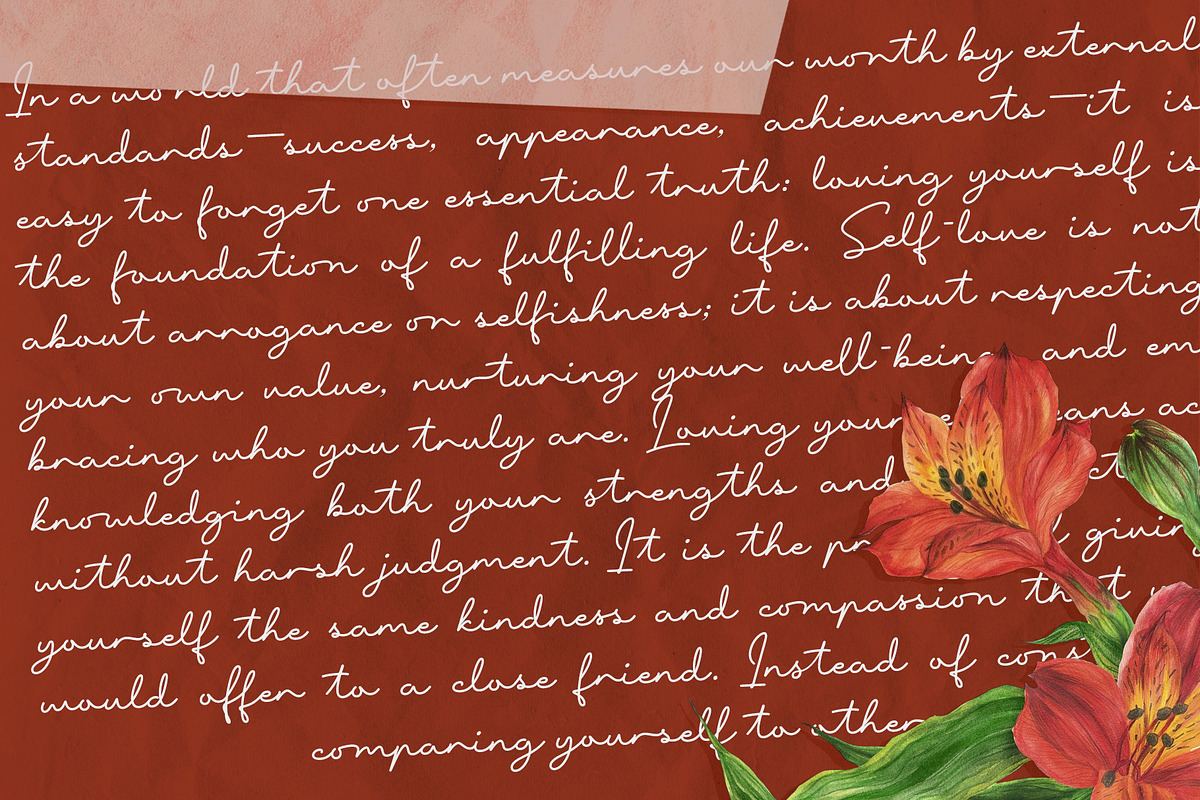 In a world that often measures our worth by external
standards—success, appearance, achievements—it is
easy to forget one essential truth: loving yourself is
the foundation of a fulfilling life. Self-love is not
about arrogance or selfishness; it is about respecting
your own value, nurturing your well-being and em
bracing who you truly are. Loving your ac
knowledging both your strengths and
without harsh judgment. It is the giving
yourself the same kindness and compassion that
would offer to a close friend. Instead of
comparing yourself to other